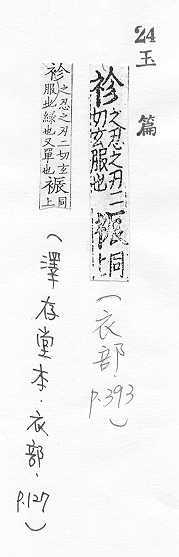 24 玉篇
袗 之忍之刃二切玄服也 裖 同上 (衣部·p.393)
袗 之忍之刃二切玄服也緣也又單也 裖 同上 (澤存堂本·衣部·p.127)